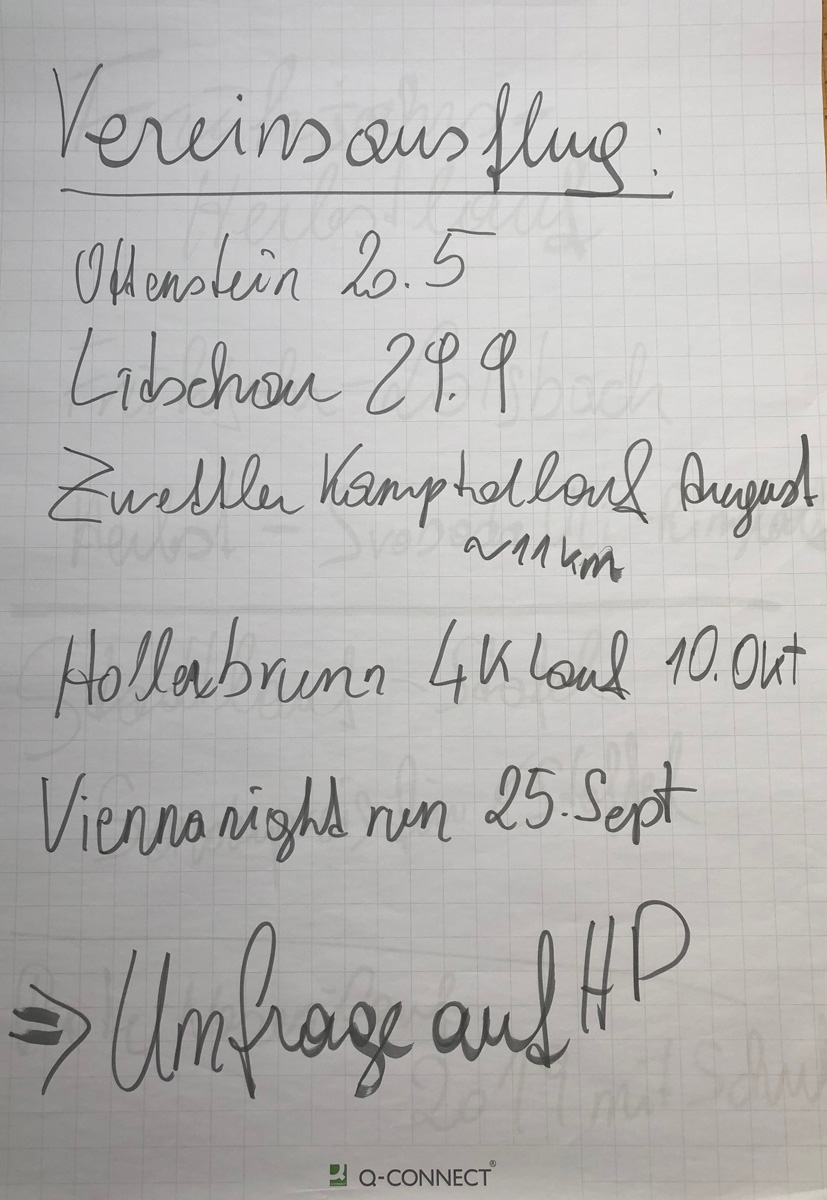 Vereinsausflug:
Ottenstein 20.5
Litschau 29.9
Zwettler Kamptallauf August
~11km
Hollabrunn 4K lauf 10.Okt
Vienna night run 25.Sept
⇒ Umfrage auf HP
Q-CONNECT®